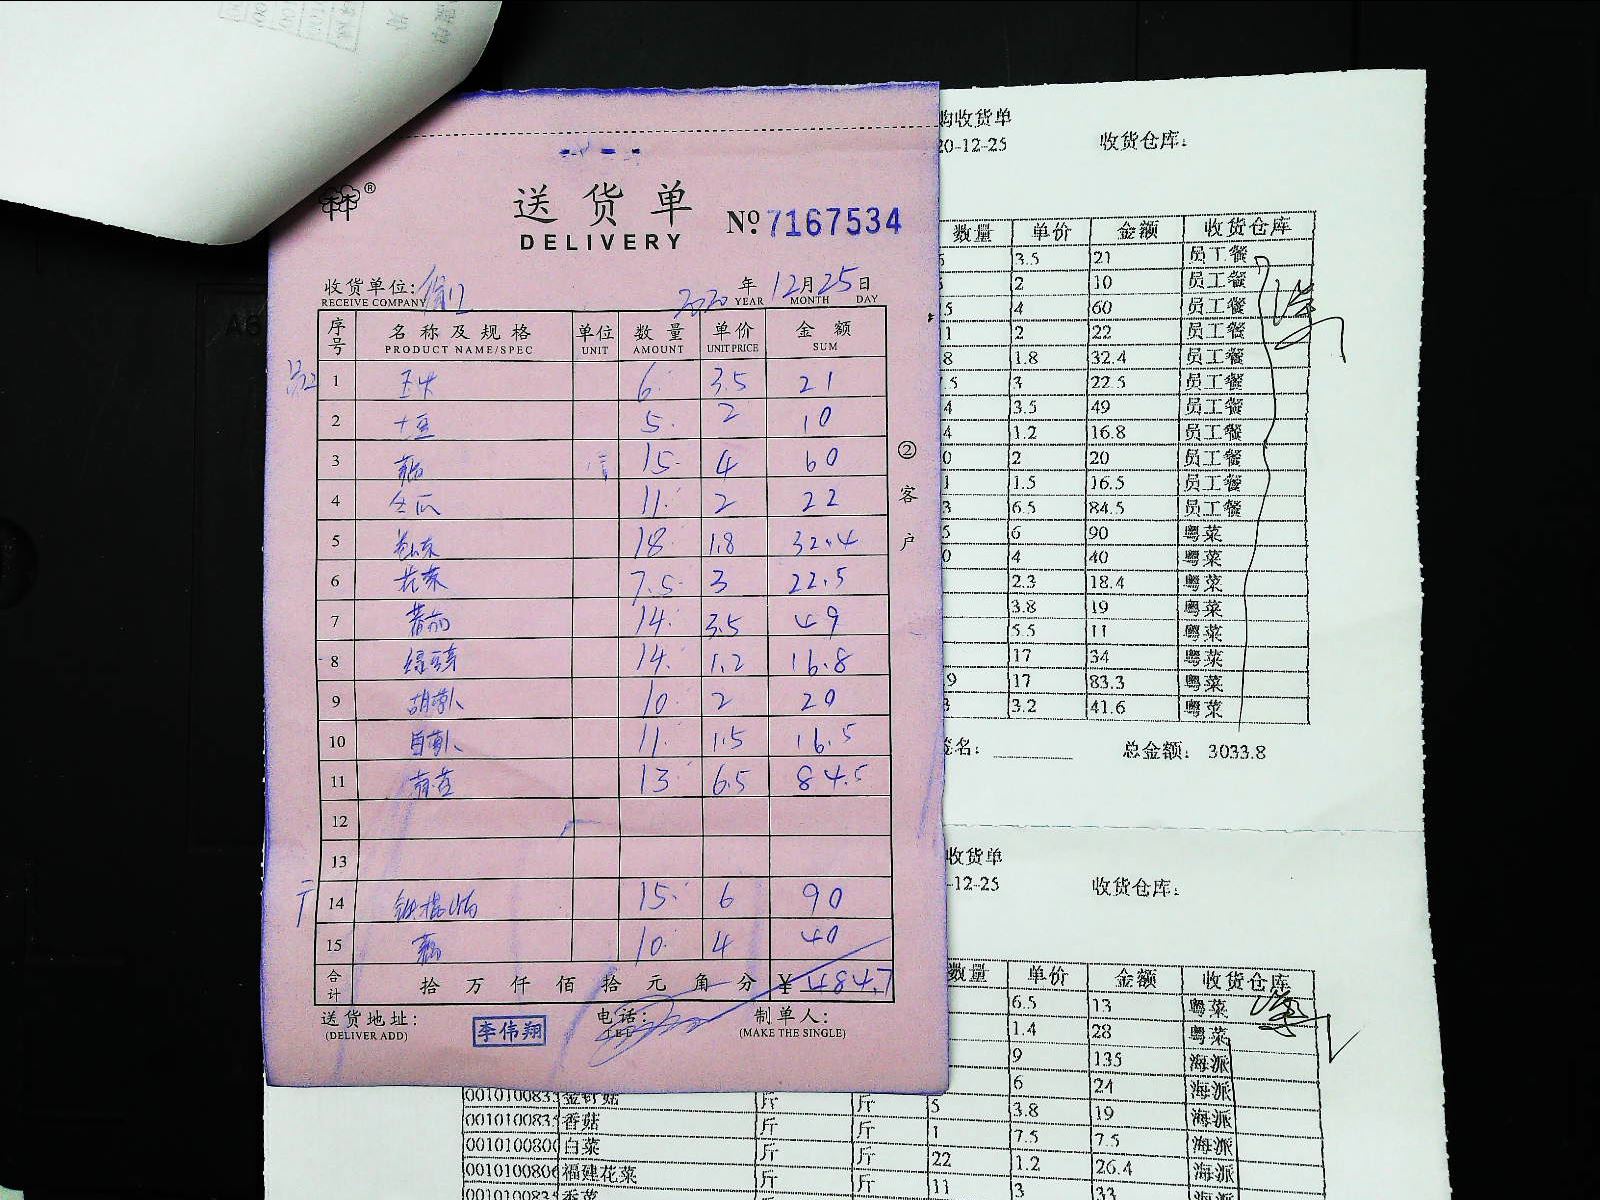 送货单
DELIVERY
№ 7167534
收货单位:
RECEIVE COMPANY
2020年12月25日
YEAR MONTH DAY
序号 名称及规格 单位 数量 单价 金额
PRODUCT NAME/SPEC UNIT AMOUNT UNIT PRICE SUM
1 6 3.5 21
2 土豆 5 2 10
3 15 4 60
4 冬瓜 11 2 22
5 18 1.8 32.4
6 花菜 7.5 3 22.5
7 番茄 14 3.5 49
8 绿豆芽 14 1.2 16.8
9 胡萝卜 10 2 20
10 白萝卜 11 1.5 16.5
11 13 6.5 84.5
12
13
14 铁棍山药 15 6 90
15 10 4 40
合计 拾万仟佰拾元角分 ¥ 484.7
送货地址:
(DELIVER ADD)
李伟翔
电话:
TEL
制单人:
(MAKE THE SINGLE)
②客户
购收货单
20-12-25 收货仓库:
数量 单价 金额 收货仓库
3.5 21 员工餐
2 10 员工餐
5 4 60 员工餐
1 2 22 员工餐
8 1.8 32.4 员工餐
.5 3 22.5 员工餐
4 3.5 49 员工餐
4 1.2 16.8 员工餐
0 2 20 员工餐
1 1.5 16.5 员工餐
3 6.5 84.5 员工餐
5 6 90 粤菜
0 4 40 粤菜
2.3 18.4 粤菜
3.8 19 粤菜
5.5 11 粤菜
17 34 粤菜
9 17 83.3 粤菜
3 3.2 41.6 粤菜
签名: 总金额: 3033.8
收货单
-12-25 收货仓库:
数量 单价 金额 收货仓库
6.5 13 粤菜
1.4 28 粤菜
9 135 海派
6 24 海派
001010083 金针菇 斤 斤 5 3.8 19 海派
001010083 香菇 斤 斤 1 7.5 7.5 海派
001010080 白菜 斤 斤 22 1.2 26.4 海派
001010080 福建花菜 斤 斤 11 3 33 海派